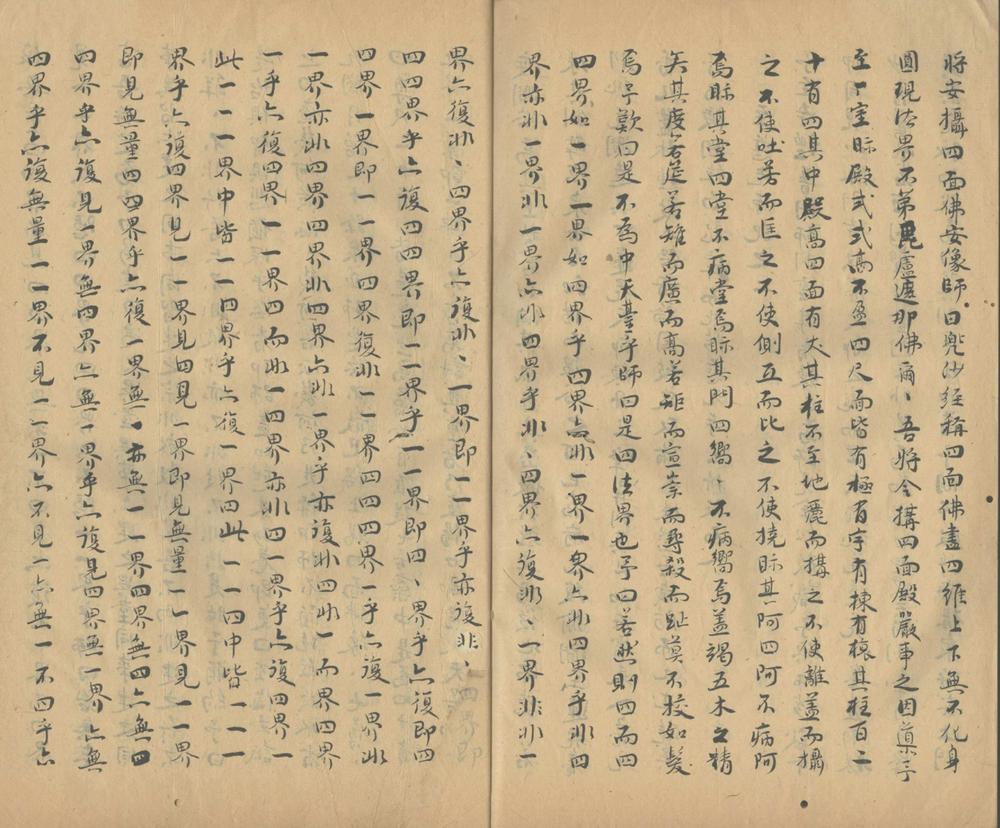 將安攝四面佛安像師曰兜沙經稱四面佛盡四維上下無不化身
圓現法界不第毘盧遮那佛爾、吾將令搆四面殿嚴事之因導予
至一室眎殿式式高不盈四尺而皆有極有宇有棟有榱其柱百二
十有四其中殿高四面有大其柱不至地麗而搆之不使離蓋而攝
之不使吐荖而匡之不使側互而比之不使撓眎其阿四阿不病阿
焉眎其堂四堂不病堂焉眎其門四嚮、不病嚮焉蓋竭五木之精
矣其度若筵若雉而廣而高若矩而宣崇而尋殺而趾莫不挍如髮
焉予歎曰是不為中天臺乎師曰是四法界也予曰若然則四而四
四界如一界一界如四界乎四界亦非一界一界亦非四界乎非四
界亦非一界非一界亦非四界乎非、四界亦復非、一界非非一
界亦復非、四界乎亦復非、一界即一一界乎亦復非、
四四界乎亦復四四界即一一界乎一一界即四、界乎亦復即四
四界一界即一一界四四界復非一一界四四四界一乎亦復一界非
一界亦非四界四界非四界亦非一界乎亦復非四非一而界四界
一乎亦復四界一一界四而非一四界亦非四一界乎亦復四界一
此一一一界中皆一一四界乎亦復一界四此一一四中皆一一一
界乎亦復四界見一一界見四見一界即見無量一一界見一一界
即見無量四四界乎亦復一界無一亦無一一界四界無四亦無四
四界乎亦復見一界無四界亦無一界乎亦復見四界無一界亦無
四界乎亦復無量一一界不見一一界亦不見一亦無一不四乎亦